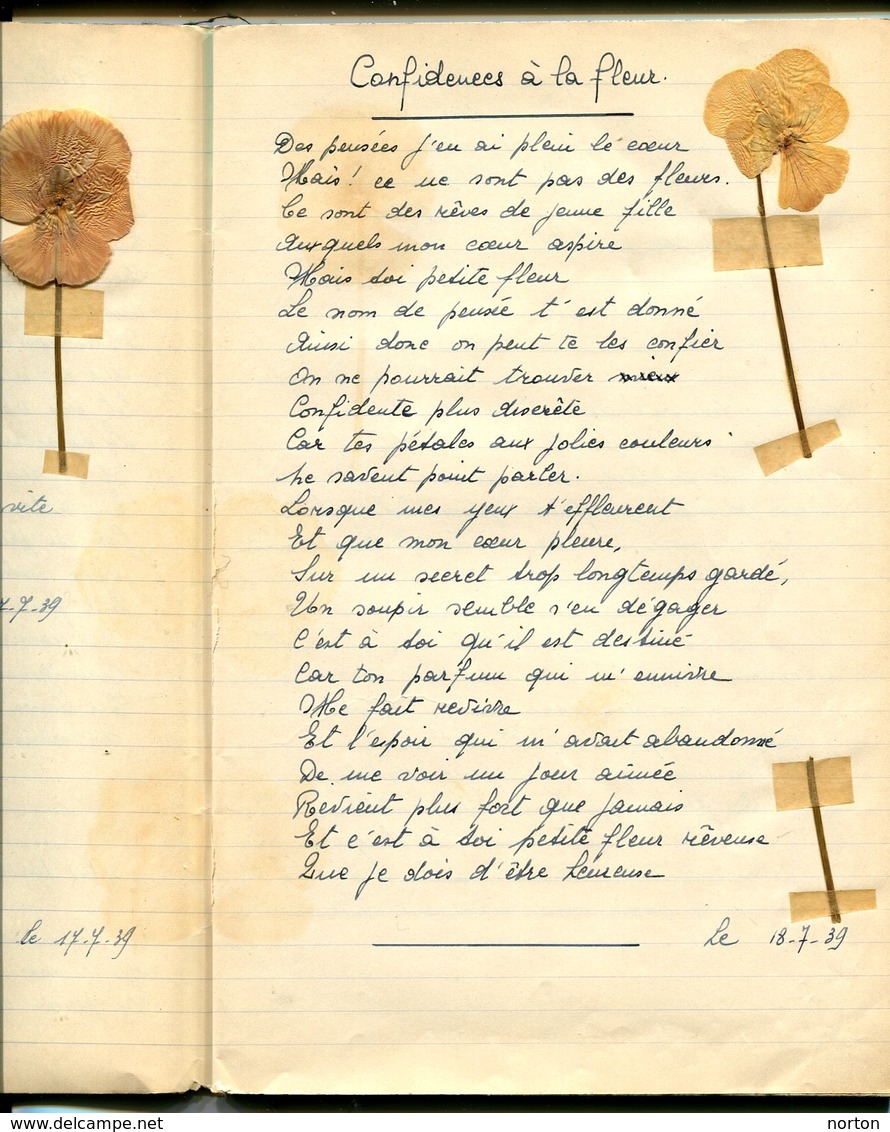 Confidences à la fleur.
Des pensées j'en ai plein le cœur
Mais! ce ne sont pas des fleurs.
Ce sont des rêves de jeune fille
Auxquels mon cœur aspire
Mais toi petite fleur
Le nom de pensée t'est donné
Ainsi donc on peut te les confier
On ne pourrait trouver mieux
Confidente plus discrète
Car tes pétales aux jolies couleurs
Ne savent point parler.
Lorsque mes yeux t'effleurent
Et que mon cœur pleure,
Sur un secret trop longtemps gardé,
Un soupir semble s'en dégager
C'est à toi qu'il est destiné
Car ton parfum qui m'ennivre
Me fait revivre
Et l'espoir qui m'avait abandonné
De me voir un jour aimée
Revient plus fort que jamais
Et c'est à toi petite fleur rêveuse
Que je dois d'être heureuse
Le 18-7-39
vite
7-39
le 17-7-39
www.delcampe.net
norton